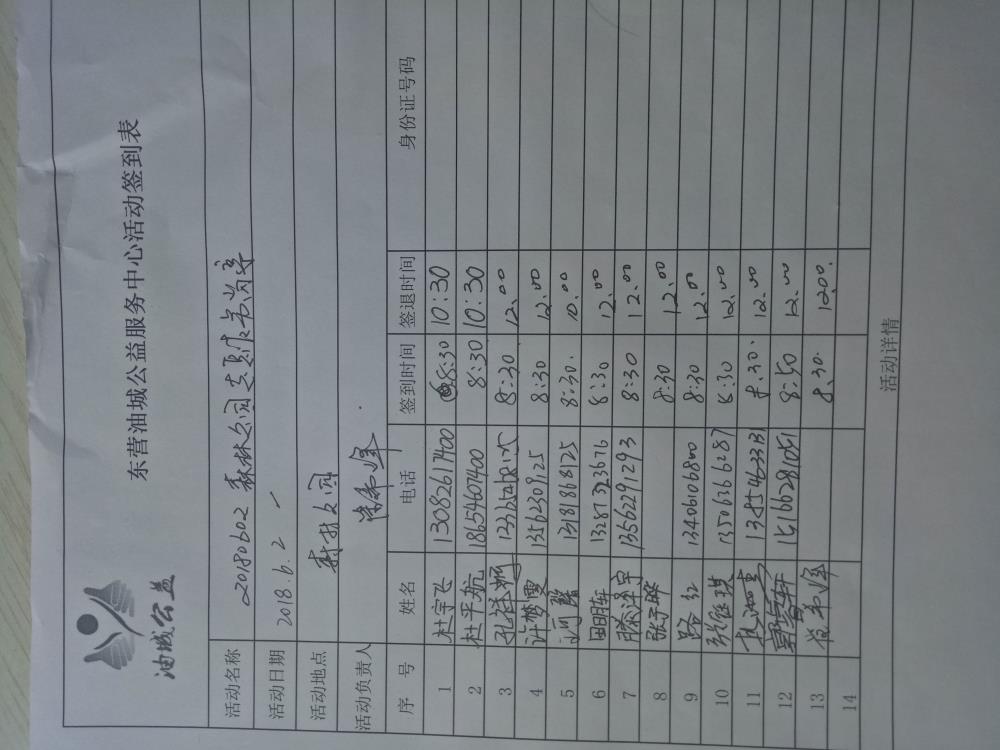 油城公益
东营油城公益服务中心活动签到表
活动名称 20180602 森林公园
活动日期 2018.6.2
活动地点 森林公园
活动负责人
序号 姓名 电话 签到时间 签退时间 身份证号码
1 杜宇飞 13082617400 8:30 10:30
2 杜平航 18654607400 8:30 10:30
3 8:30 12.00
4 许梦雯 13562309125 8:30 12.00
5 13181868125 8:30. 10.00
6 田明轩 13287323676 8:30 12.00
7 滕泽宇 13562291293 8:30 12.00
8 张子晔 8:30 12.00
9 路 13406106800 8:30 12.00
10 张维琪 13506366287 8:30 12.00
11 13854633331 8.30. 12.00
12 8:50 12.00
13 8.30. 1200.
14
活动详情